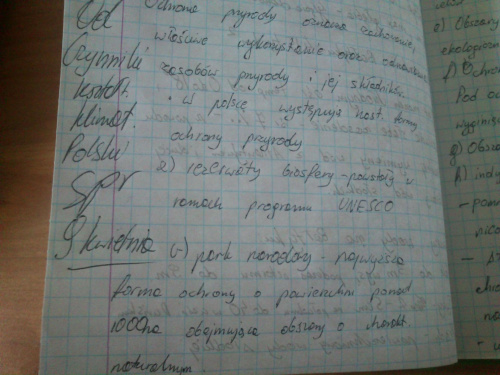 Od
Czynniki
kształt.
klimat.
Polski
Spr
9 kwietnia
Ochrona przyrody oznacza zachowanie,
właściwe wykorzystanie oraz odnawianie
zasobów przyrody i jej składników
w polsce występują nast. formy
ochrony przyrody
a) rezerwaty biosfery - powstały w
ramach programu UNESCO
park narodowy - najwyższa
forma ochrony o powierzchni ponad
1000ha obejmująca obszary o charakt.
naturalnym
e) Obszary
f) Ochron
Pod oc
g) Obsza
h) indy